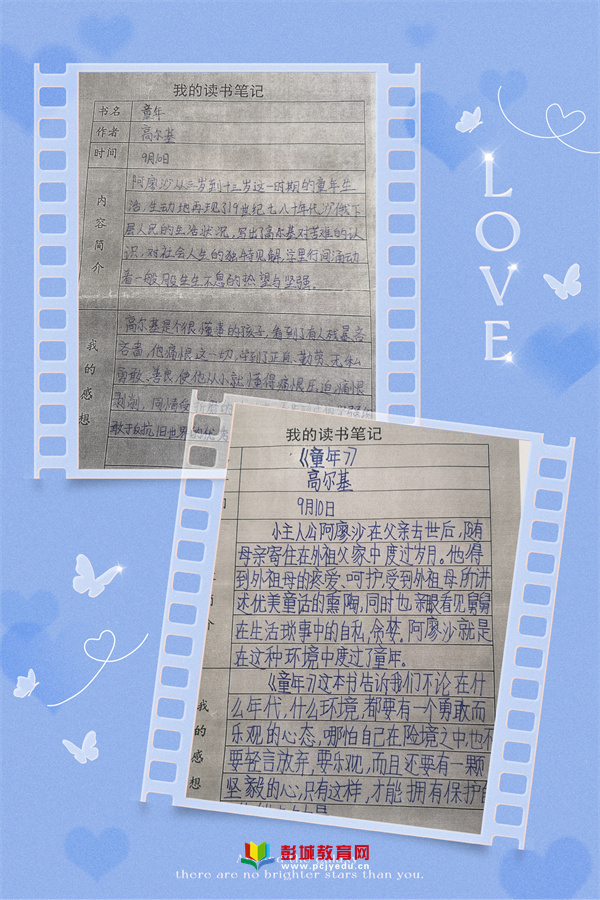 我的读书笔记
书名 童年
作者 高尔基
时间 9月10日
内容简介
阿廖沙从三岁到十三岁这一时期的童年生
活,生动地再现了19世纪七八十年代沙俄下
层人民的生活状况,写出了高尔基对苦难的认
识,对社会人生的独特见解,字里行间涌动
着一股生生不息的热望与坚强。
我的感想
高尔基是个很懂事的孩子,看到了有人残暴
这一切,学到了正直、勤劳、无私
勇敢、善良,使他从小就懂得痛恨压迫,痛恨
剥削,同情受
敢于反抗旧世界的
LOVE
我的读书笔记
《童年》
高尔基
9月10日
小主人公阿廖沙在父亲去世后,随
母亲寄住在外祖父家中度过岁月。他得
到外祖母的疼爱、呵护,受到外祖母所讲
述优美童话的熏陶,同时也亲眼看见舅舅
在生活琐事中的自私、贪婪,阿廖沙就是
在这种环境中度过了童年。
我的感想
《童年》这本书告诉我们不论在什
么年代,什么环境,都要有一个勇敢而
乐观的心态,哪怕自己在险境之中,也不
要轻言放弃,要乐观,而且还要有一颗
坚毅的心,只有这样,才能拥有保护
彭城教育网
www.pcjyedu.cn
there are no brighter stars than you.